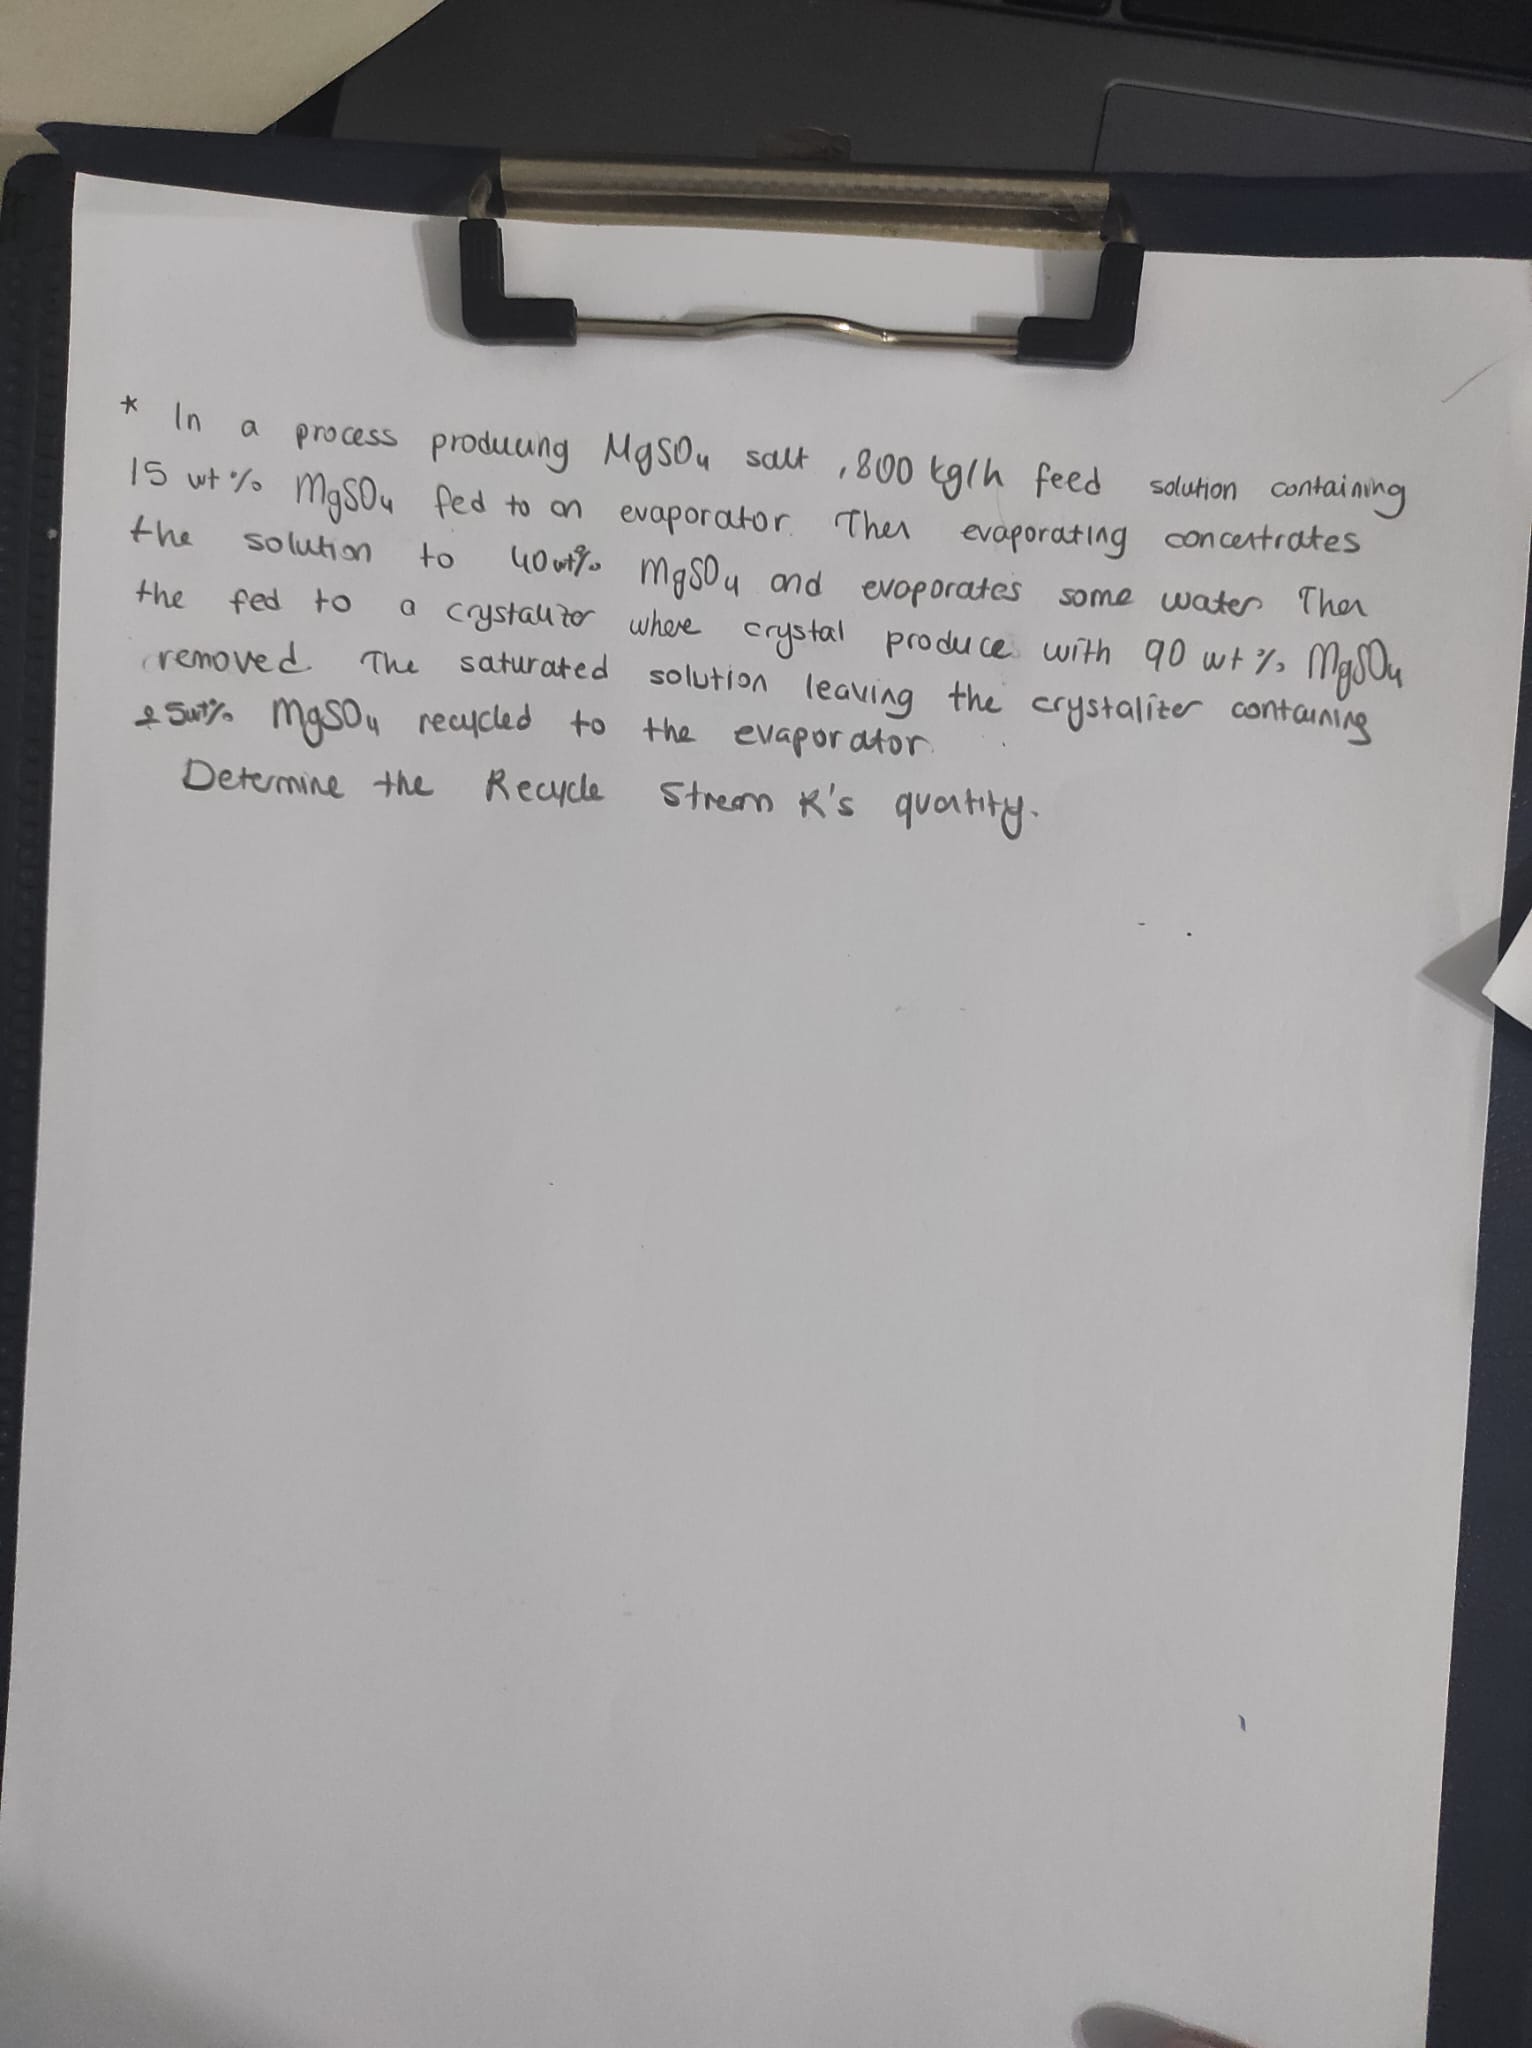 * In a process producing MgSO4 salt, 800 kg/h feed solution containing
15 wt % MgSO4 fed to an evaporator. Then evaporating concentrates
the solution to 40 wt% MgSO4 and evaporates some water Then
the fed to a crystalizor where crystal produce with 90 wt % MgSO4
removed. The saturated solution leaving the crystalizer containing
25wt% MgSO4 recycled to the evaporator.
Determine the Recycle Stream R's quantity.